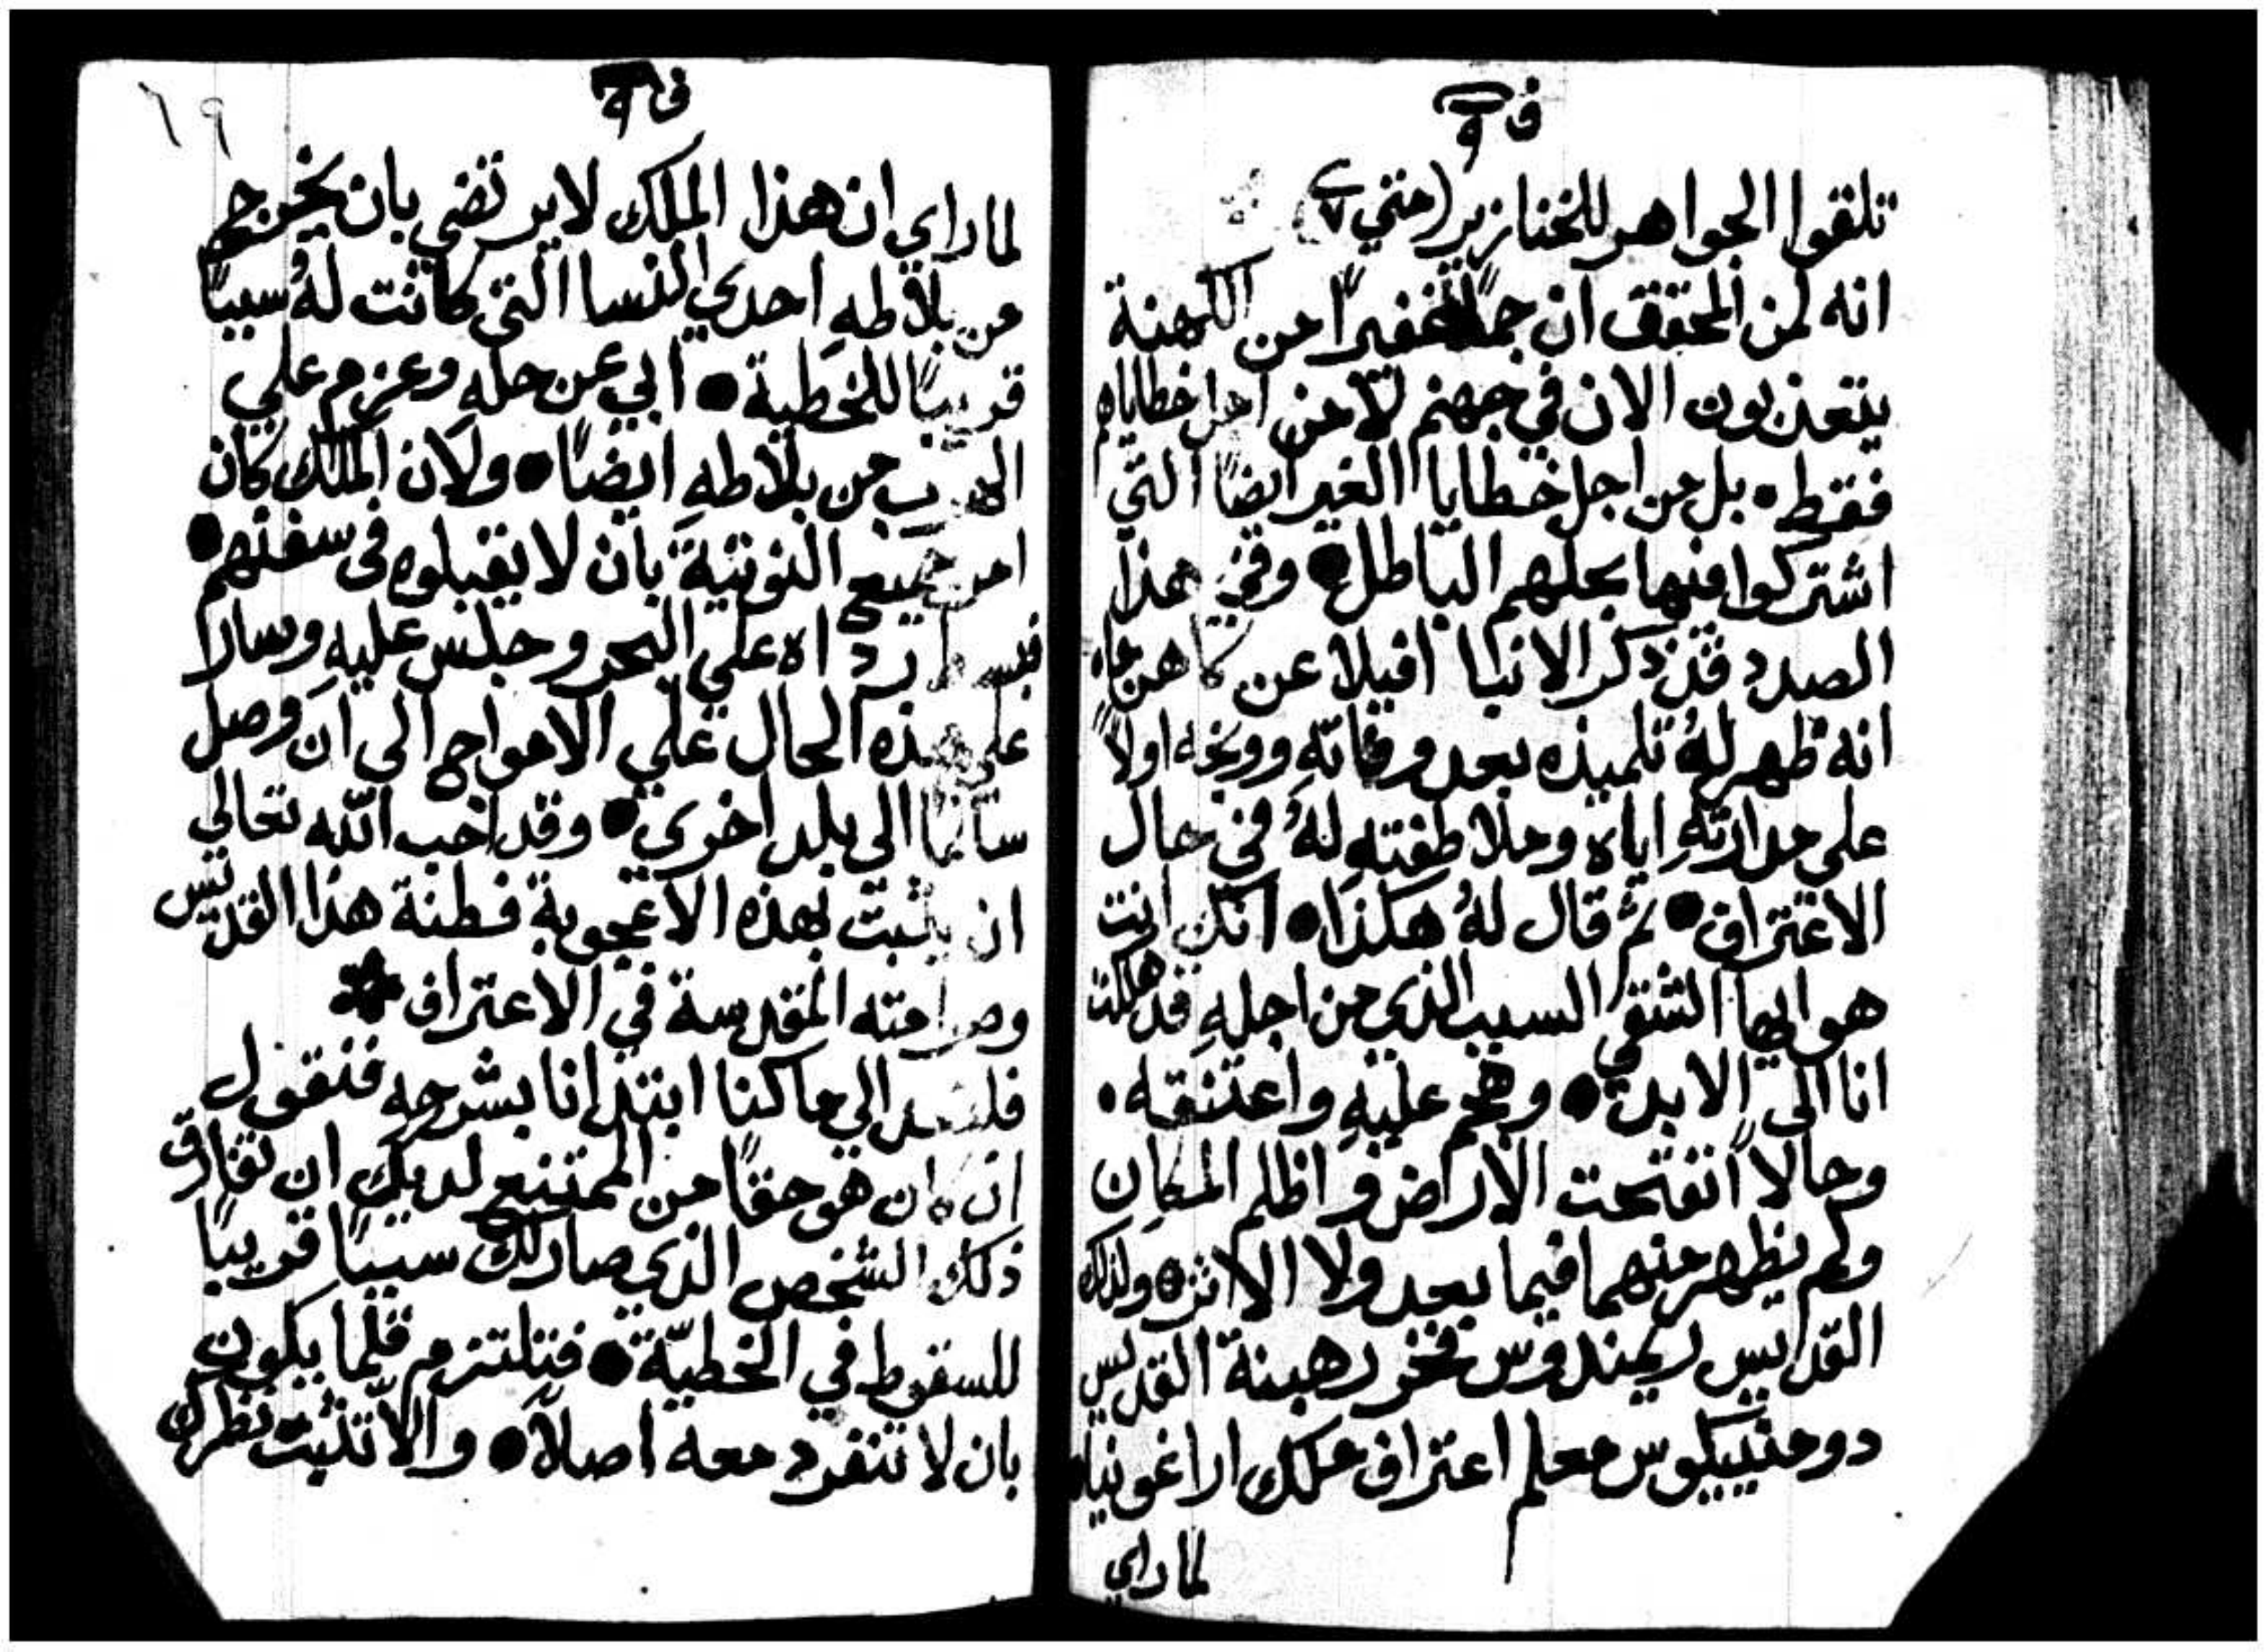 ف ٩
تلقوا الجواهر للخنازير (متي ٧)
انه لمن المحقق ان جمًا غفيرًا من الكهنة
يتعذبون الان في جهنم لا من اجل خطاياهم
فقط • بل من اجل خطايا الغير ايضًا التي
اشتركوا فيها بحلهم الباطل • وفي هذا
الصدد قد ذكر الانبا افيلا عن كاهن ما
انه ظهر لهُ تلميذه بعد وفاتهِ ووبخه اولاً
على مداراتهِ اياه وملاطفتهِ لهُ في حال
الاعتراف • ثم قال لهُ هكذا • انك انت
هو ايها الشقي السبب الذي من اجلهِ قد هلكت
انا الى الابد • وهجم عليهِ واعتنقه •
وحالاً انفتحت الارض واظلم المكان
ولم يظهر منهما فيما بعد ولا الاثر • ولذلك
القديس ريمندوس فخر رهبنة القديس
دومنيكوس معلم اعتراف ملك اراغونيا
لما راي
٦٩
ف ٩
لما راي ان هذا الملك لا يرتضي بان يخرج
من بلاطهِ احدي النسا التي كانت لهُ سببًا
قريبًا للخطية • ابي عن حلهِ وعزم علي
الهرب من بلاطهِ ايضًا • ولان الملك كان
امر جميع النوتية بان لا يقبلوه في سفنهم •
فبسط رداه علي البحر وجلس عليهِ وسارا
على هذه الحال علي الامواج الي ان وصل
سالمًا الي بلد اخري • وقد احب الله تعالي
ان يثبت بهذه الاعجوبة فطنة هذا القديس
وصرامته المقدسة في الاعتراف
فلنعد الي ما كنا ابتدانا بشرحهِ فنقول
ان كان هو حقًا من الممتنع لديك ان تفارق
ذلك الشخص الذي صار لك سببًا قريبًا
للسقوط في الخطيّة • فتلتزم قلما يكون
بان لا تنفرد معه اصلاً • والاّ تثبت نظرك